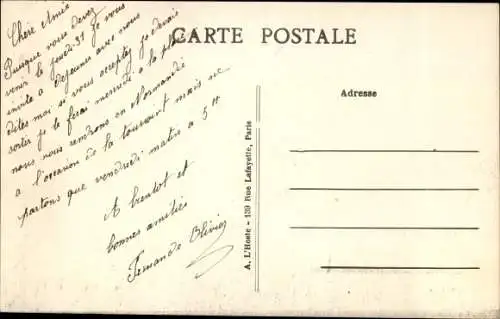 Chère Amie
Puisque vous devez
venir le jeudi 31 je vous
invite à déjeuner avec nous
dites moi si vous acceptez je devais
sortir je le ferai mercredi à la place
nous nous rendrons en Normandie
à l'occasion de la toussaint mais ne
partons que vendredi matin à 5 H
A bientot et
bonnes amitiés
Fernande Olivier
CARTE POSTALE
Adresse
A. L'Hoste - 139 Rue Lafayette, Paris